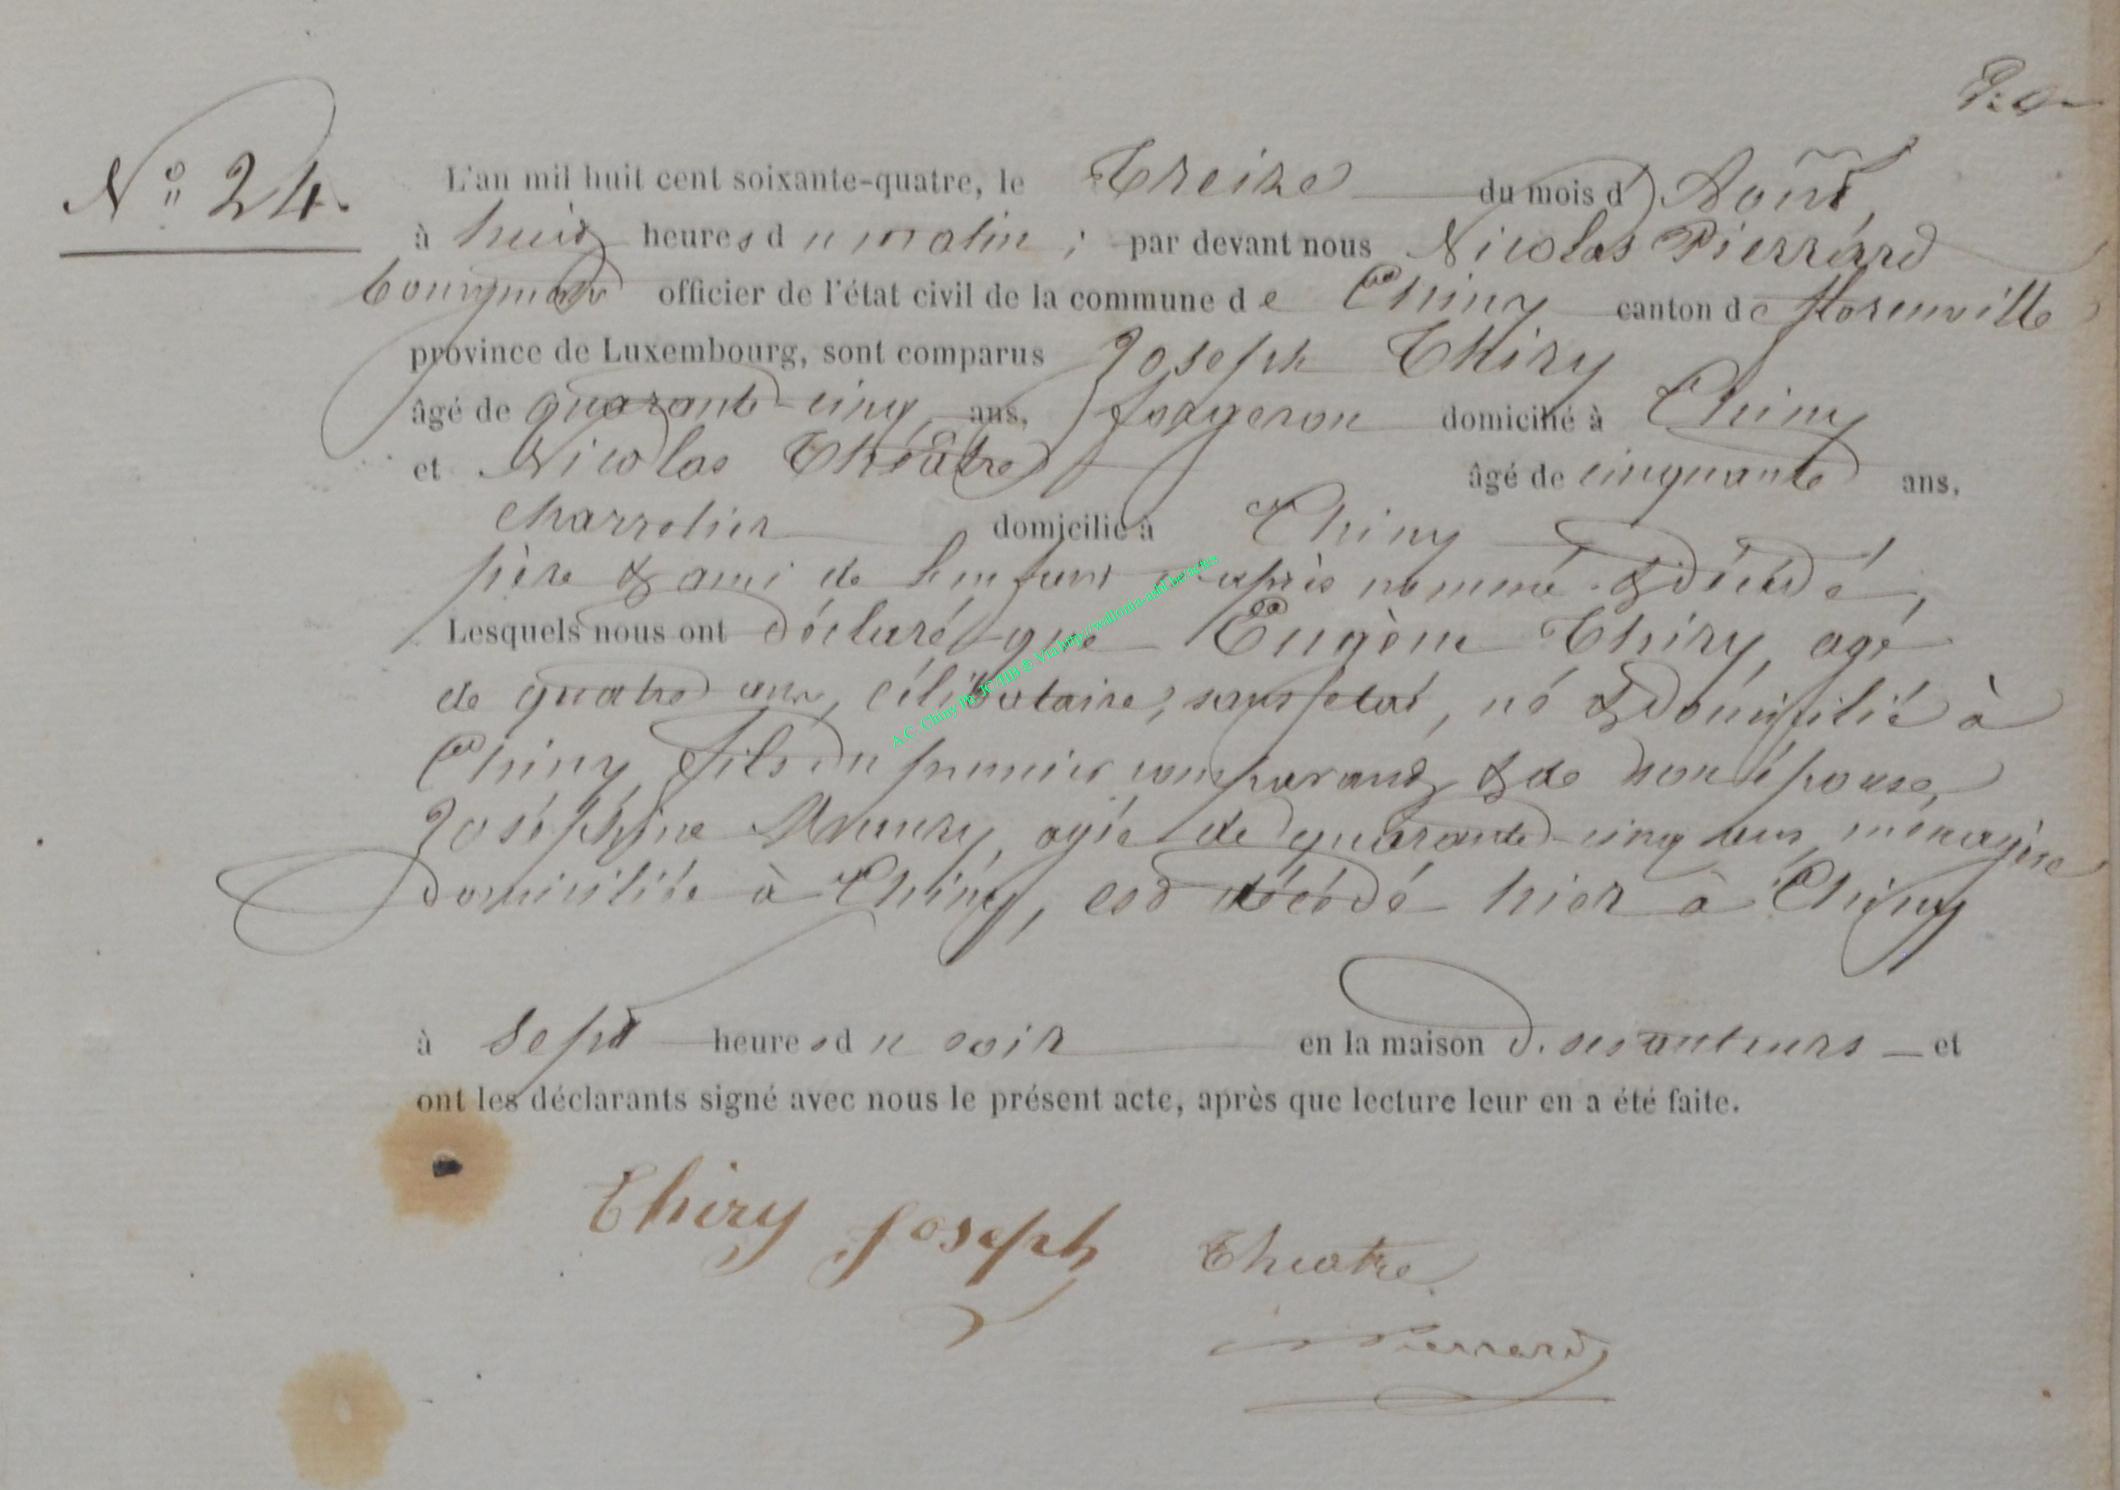 N° 24.
L'an mil huit cent soixante-quatre, le Treize du mois d'Août,
à huit heures du matin ; par devant nous Nicolas Pierrard
bourgmestre officier de l'état civil de la commune de Chiny canton de florenville
province de Luxembourg, sont comparus Joseph Thiry
âgé de quarante-cinq ans, forgeron domicilié à Chiny
et Nicolas Théâtre âgé de cinquante ans,
charretier domicilié à Chiny
père & ami de l'enfant ci après nommé & décédé,
Lesquels nous ont déclaré que Eugène Thiry, agé
de quatre ans, célibataire, sans état, né & domicilié à
Chiny, fils du premier comparant & de son épouse,
Joséphine agée de quarante-cinq ans, ménagère
domiciliée à Chiny, est décédé hier à Chiny
à Sept heures du soir en la maison de ses auteurs et
ont les déclarants signé avec nous le présent acte, après que lecture leur en a été faite.
Thiry Joseph Theatre
Pierrard